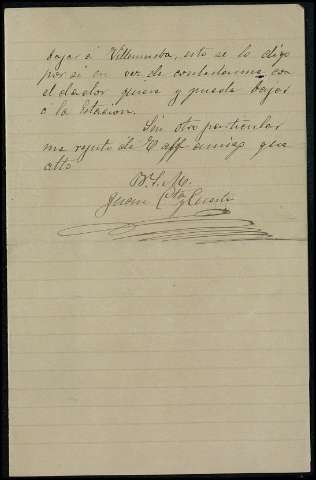 bajar á Villamuelba, esto se lo digo
por si en vez de contestarme con
el dador quiere y puede bajar
á la Estacion.
Sin otro particular
me repito de V. aff amigo que
atto
B. S. M.
Juan
y